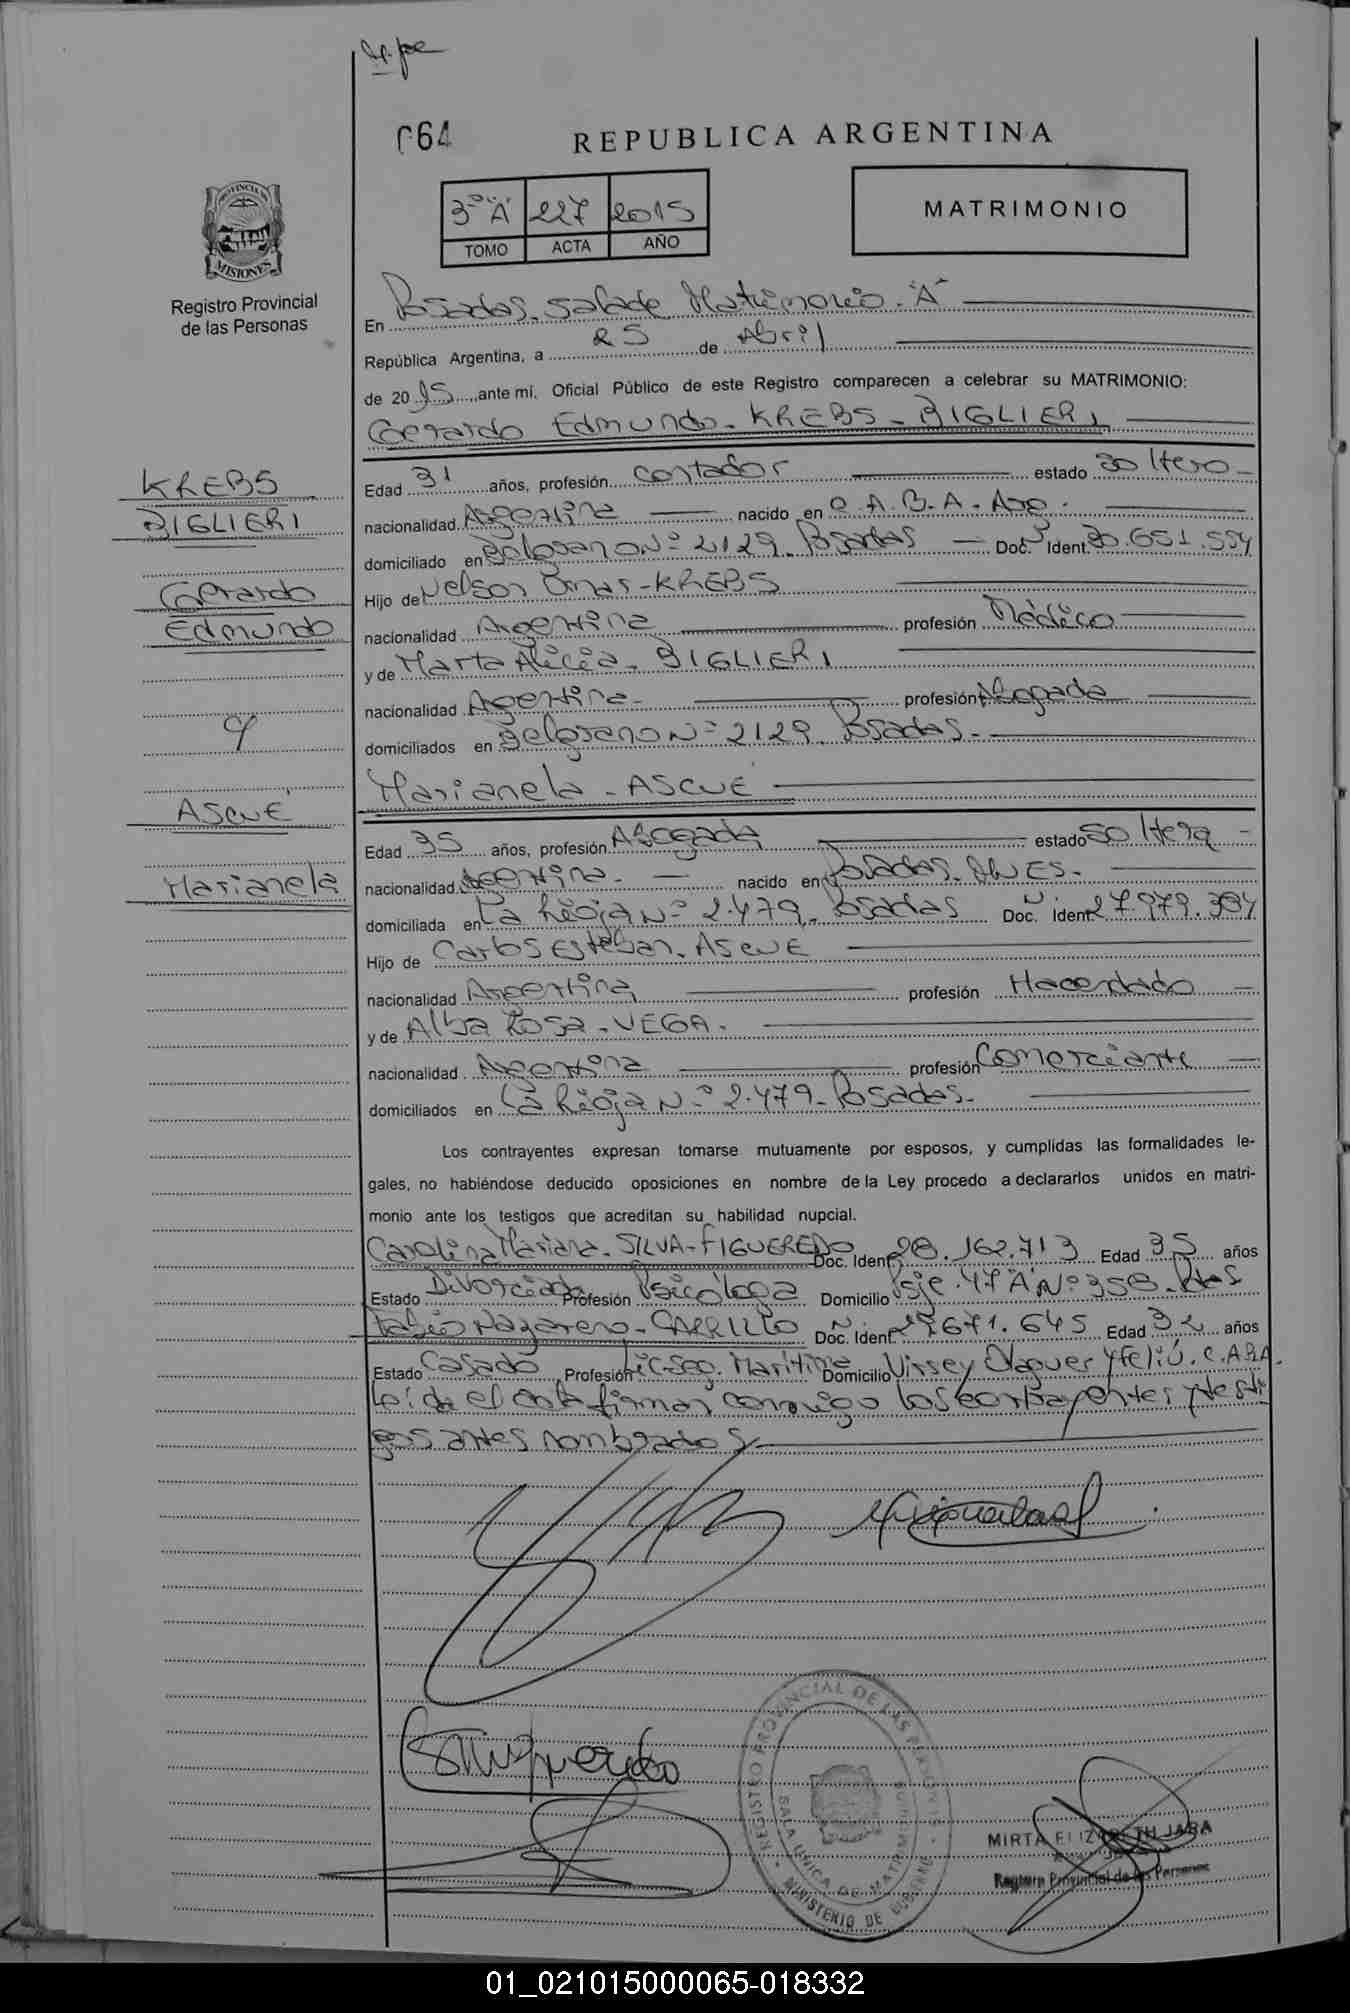 064
REPUBLICA ARGENTINA
3º "A" 227 2015
TOMO ACTA AÑO
MATRIMONIO
PROVINCIA DE
MISIONES
Registro Provincial
de las Personas
En Posadas. sala de Matrimonio. "A"
República Argentina, a 25 de Abril
de 2015, ante mí, Oficial Público de este Registro comparecen a celebrar su MATRIMONIO:
Gerardo Edmundo. KREBS - BIGLIERI
KREBS
BIGLIERI
Gerardo
Edmundo
c/
ASCUÉ
Marianela
Edad 31 años, profesión Contador estado soltero
nacionalidad Argentina nacido en C.A.B.A.
domiciliado en Belgrano Nº 2129. Posadas Doc. Ident. 30.651.554
Hijo de Nelson Omar - KREBS
nacionalidad Argentina profesión Médico
y de Marta Alicia. BIGLIERI
nacionalidad Argentina profesión Abogada
domiciliados en Belgrano Nº 2129. Posadas.
Marianela - ASCUE
Edad 35 años, profesión Abogada estado soltera
nacionalidad Argentina nacido en Posadas.
domiciliada en La Rioja Nº 2.479. Posadas Doc. Ident 27.979.384
Hijo de Carlos Esteban. ASCUE
nacionalidad Argentina profesión Hacendado
y de Alba Rosa. VEGA.
nacionalidad Argentina profesión Comerciante
domiciliados en La Rioja Nº 2.479. Posadas.
Los contrayentes expresan tomarse mutuamente por esposos, y cumplidas las formalidades le-
gales, no habiéndose deducido oposiciones en nombre de la Ley procedo a declararlos unidos en matri-
monio ante los testigos que acreditan su habilidad nupcial.
Carolina Mariana. SILVA - FIGUEREDO Doc. Ident 28.162.713 Edad 35 años
Estado Divorciada Profesión Psicóloga Domicilio Psje. 47 "A" Nº 358. Pdas
Fabio Nazareno - CARRILLO Doc. Ident 29.671.645 Edad 32 años
Estado Casado Profesión Lic. Seg. Maritima Domicilio Virrey Olaguer y Feliú. C.A.B.A.
Leída el acta firman conmigo los contrayentes y testi
gos antes nombrados
REGISTRO PROVINCIAL DE LAS PERSONAS
SALA UNICA DE MATRIMONIO
MINISTERIO DE GOBIERNO
MIRTA ELIZABETH JARA
Registro Provincial de las Personas
01_021015000065-018332